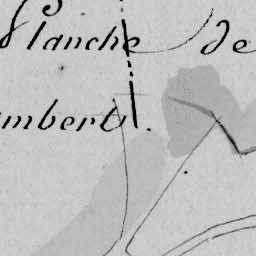 Planche de
mbert.